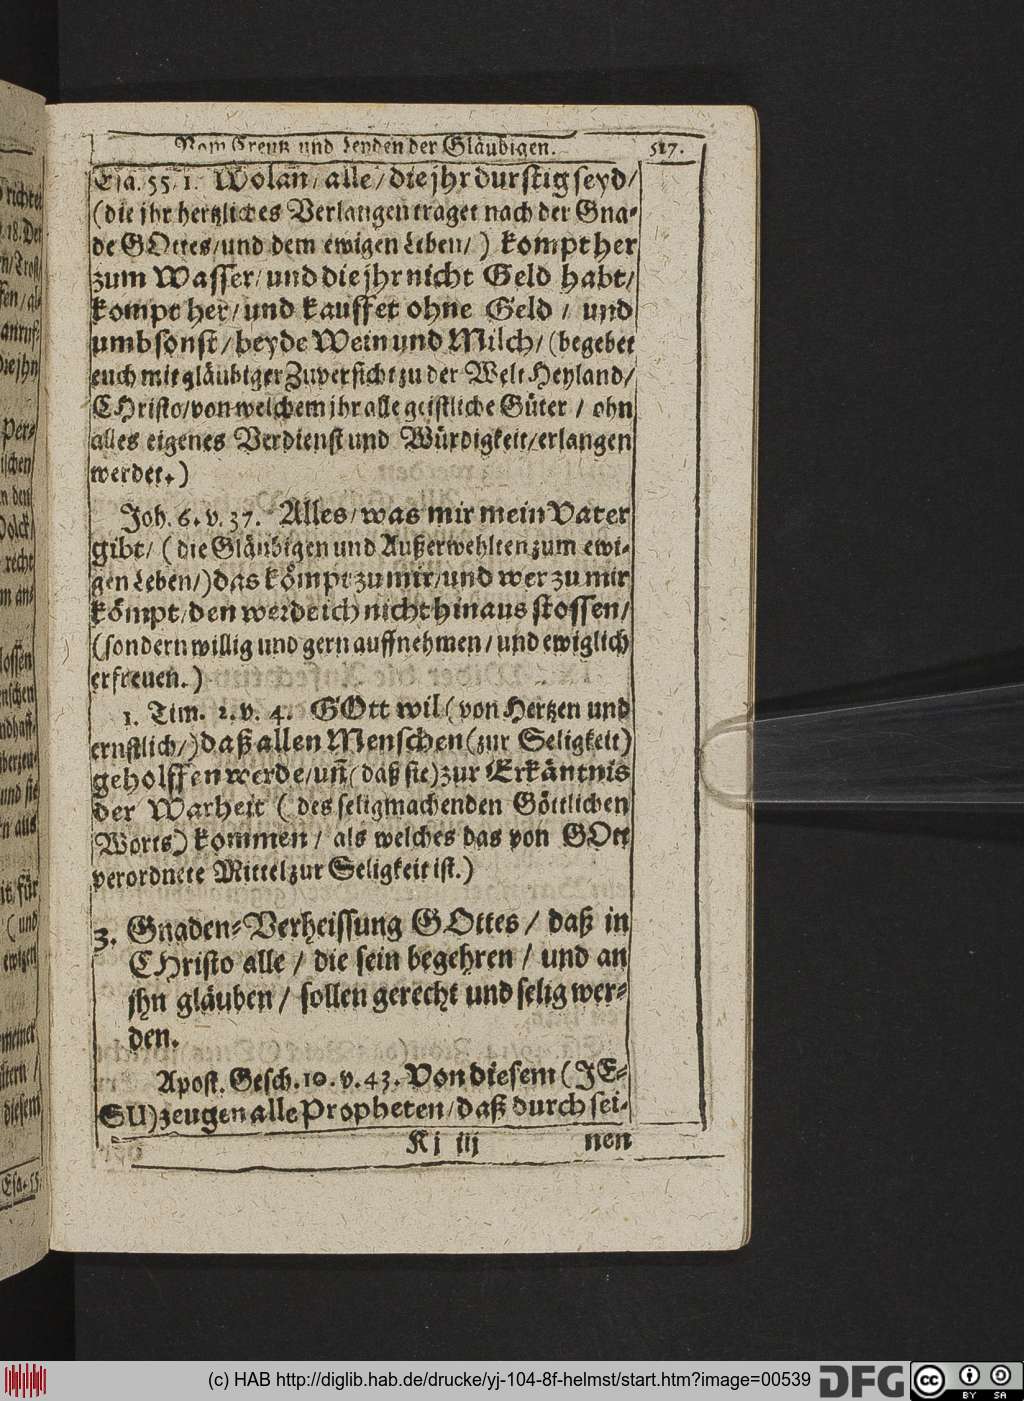 Vom Creutz und Leyden der Gläubigen. 517.
Esa. 55. 1. Wolan / alle / die jhr durstig seyd /
(die jhr hertzliches Verlangen traget nach der Gna-
de GOttes / und dem ewigen Leben /) kompt her
zum Wasser / und die jhr nicht Geld habt /
kompt her / und kauffet ohne Geld / und
umbsonst / beyde Wein und Milch / (begebet
euch mit gläubiger Zuversicht zu der Welt Heyland /
CHristo / von welchem jhr alle geistliche Güter / ohn
alles eigenes Verdienst und Würdigkeit / erlangen
werdet.)
Joh. 6. v. 37. Alles / was mir mein Vater
gibt / (die Gläubigen und Außerwehlten zum ewi-
gen Leben /) das kömpt zu mir / und wer zu mir
kömpt / den werde ich nicht hinaus stossen /
(sondern willig und gern auffnehmen / und ewiglich
erfreuen.)
1. Tim. 2. v. 4. GOtt wil (von Hertzen und
ernstlich /) daß allen Menschen (zur Seligkeit)
geholffen werde / uñ (daß sie) zur Erkäntnis
der Warheit (des seligmachenden Göttlichen
Worts) kommen / als welches das von GOtt
verordnete Mittel zur Seligkeit ist.)
3. Gnaden-Verheissung GOttes / daß in
CHristo alle / die sein begehren / und an
jhn gläuben / sollen gerecht und selig wer-
den.
Apost. Gesch. 10. v. 43. Von diesem (JE-
SU) zeugen alle Propheten / daß durch sei-
Kj iij nen
richtet
18. Der
Trost
anruf-
die jhn
Per-
n den
recht
m an-
und sie
n aus
für
(und
ewigen
diesem
Esa. 55.
(c) HAB http://diglib.hab.de/drucke/yj-104-8f-helmst/start.htm?image=00539 DFG cc BY SA